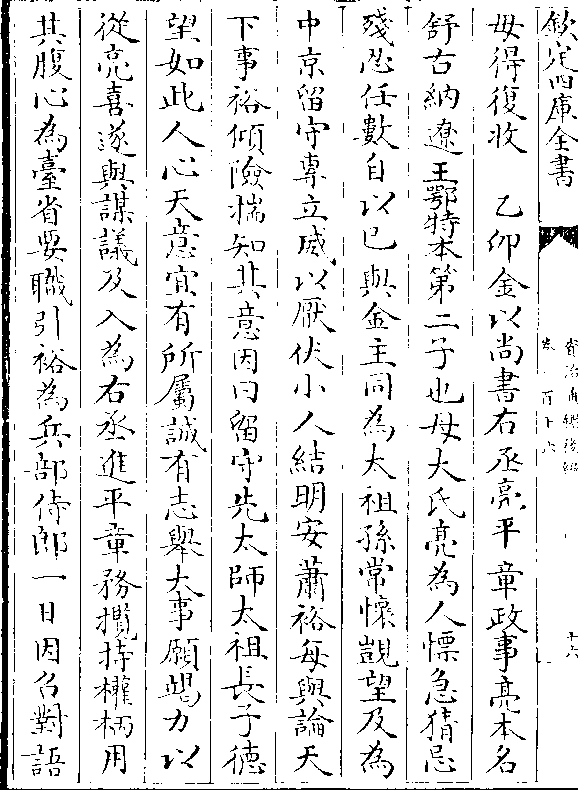 欽定四庫全書
資治通鑑後編
卷一百十六
十六
毋得復收　乙卯金以尚書右丞亮平章政事亮本名
舒古納遼王鄂特本第二子也母大氏亮為人慓急猜忌
殘忍任數自以已與金主同為太祖孫常懷覬望及為
中京留守專立威以厭伏小人結明安蕭裕每與論天
下事裕傾險揣知其意因曰留守先太師太祖長子德
望如此人心天意宜有所屬誠有志舉大事願竭力以
從亮喜遂與謀議及入為右丞進平章務攬持權柄用
其腹心為臺省要職引裕為兵部侍郎一日因召對語